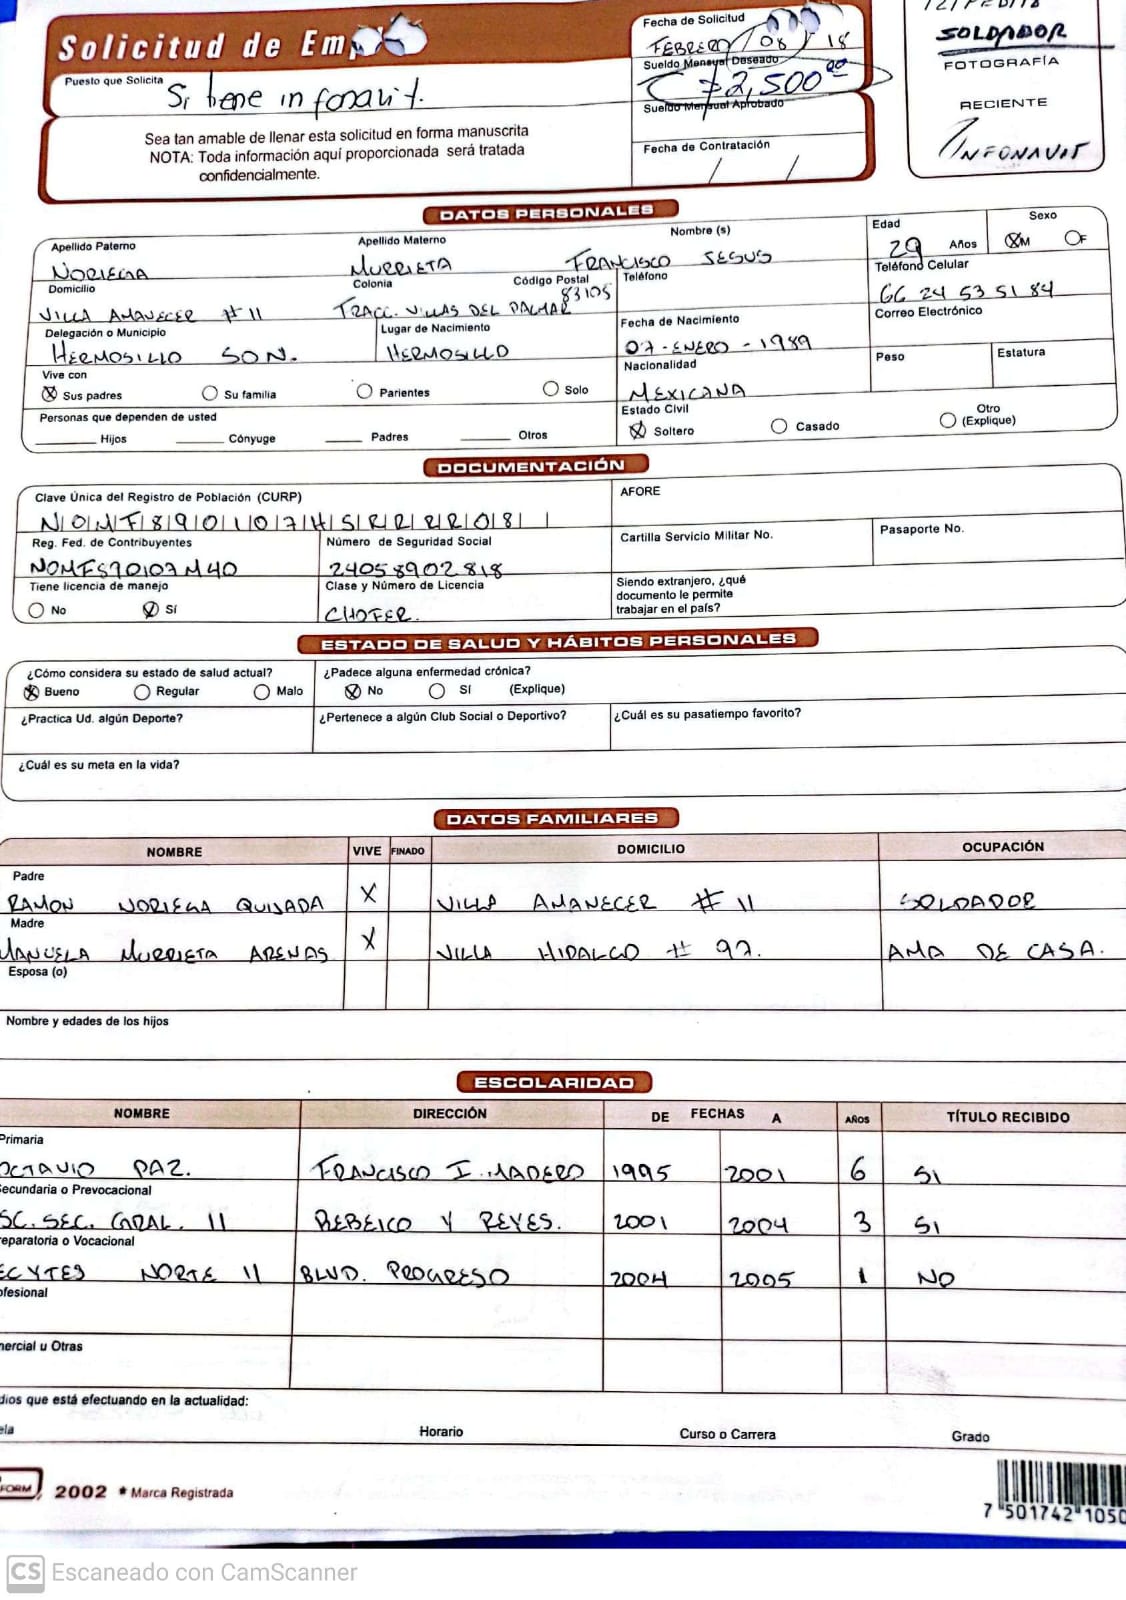 Solicitud de Em
Puesto que Solicita
Si tiene infonavit.
Sea tan amable de llenar esta solicitud en forma manuscrita
NOTA: Toda información aquí proporcionada será tratada
confidencialmente.
Fecha de Solicitud
FEBRERO / 08 / 18
Sueldo Mensual Deseado
2,500.00
Sueldo Mensual Aprobado
Fecha de Contratación
/ /
SOLDADOR
FOTOGRAFÍA
RECIENTE
INFONAVIT
DATOS PERSONALES
Apellido Paterno Apellido Materno Nombre (s) Edad Sexo
NORIEGA MURRIETA FRANCISCO JESUS 29 Años M F
Domicilio Colonia Código Postal Teléfono Teléfono Celular
VILLA AMANECER #11 FRACC. VILLAS DEL PALMAR 83105 66 24 53 51 84
Delegación o Municipio Lugar de Nacimiento Fecha de Nacimiento Correo Electrónico
HERMOSILLO SON. HERMOSILLO 07-ENERO-1989
Vive con Nacionalidad Peso Estatura
Sus padres Su familia Parientes Solo MEXICANA
Personas que dependen de usted Estado Civil
Hijos Cónyuge Padres Otros Soltero Casado Otro (Explique)
DOCUMENTACIÓN
Clave Única del Registro de Población (CURP) AFORE
N|O|M|F|8|9|0|1|0|7|H|S|R|R|R|R|0|8|
Reg. Fed. de Contribuyentes Número de Seguridad Social Cartilla Servicio Militar No. Pasaporte No.
NOMF890107M40 24058902818
Tiene licencia de manejo Clase y Número de Licencia Siendo extranjero, ¿qué
documento le permite
trabajar en el país?
No Sí CHOFER.
ESTADO DE SALUD Y HÁBITOS PERSONALES
¿Cómo considera su estado de salud actual? ¿Padece alguna enfermedad crónica?
Bueno Regular Malo No Sí (Explique)
¿Practica Ud. algún Deporte? ¿Pertenece a algún Club Social o Deportivo? ¿Cuál es su pasatiempo favorito?
¿Cuál es su meta en la vida?
DATOS FAMILIARES
NOMBRE VIVE FINADO DOMICILIO OCUPACIÓN
Padre
RAMON NORIEGA QUIJADA X VILLA AMANECER #11 SOLDADOR
Madre
MANUELA MURRIETA ARENAS X VILLA HIDALGO # 97. AMA DE CASA.
Esposa (o)
Nombre y edades de los hijos
ESCOLARIDAD
NOMBRE DIRECCIÓN DE FECHAS A AÑOS TÍTULO RECIBIDO
Primaria
OCTAVIO PAZ. FRANCISCO I. MADERO 1995 2001 6 SI
ecundaria o Prevocacional
SC. SEC. GRAL. 11 REBEICO Y REYES. 2001 2004 3 SI
reparatoria o Vocacional
ECYTES NORTE 11 BLVD. PROGRESO 2004 2005 1 NO
ofesional
mercial u Otras
dios que está efectuando en la actualidad:
ela Horario Curso o Carrera Grado
FORM 2002 * Marca Registrada
7 501742 1050
CS Escaneado con CamScanner